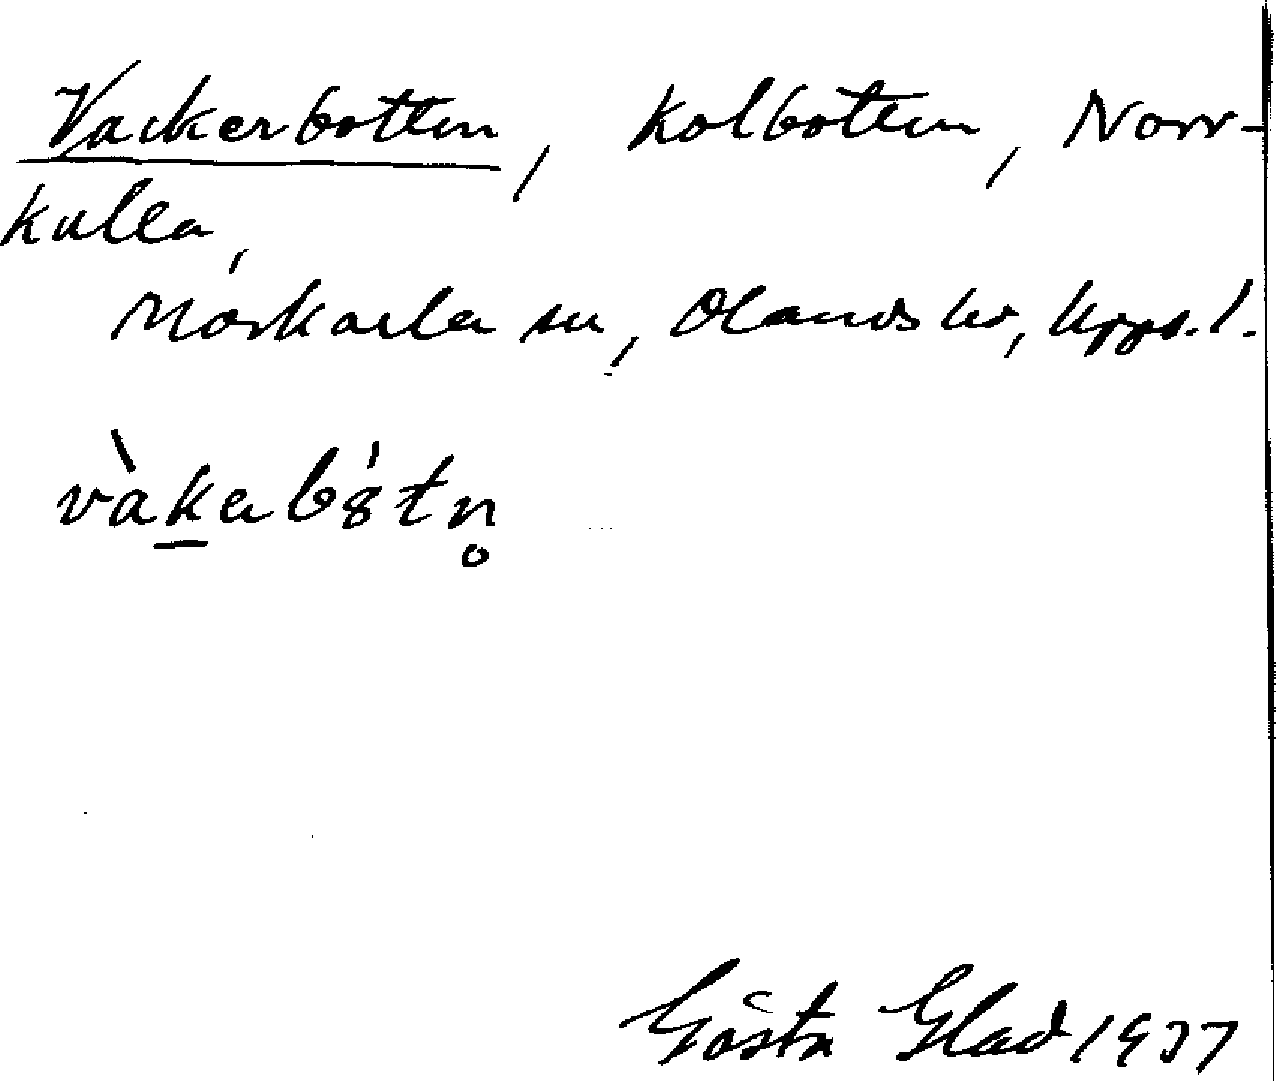 Vackerbotten, kolbotten, Norr-
kulla,
Morkarla sn, Olands hd, Upps. l.
vàkerb8́tn̥
Gösta Glad 1937